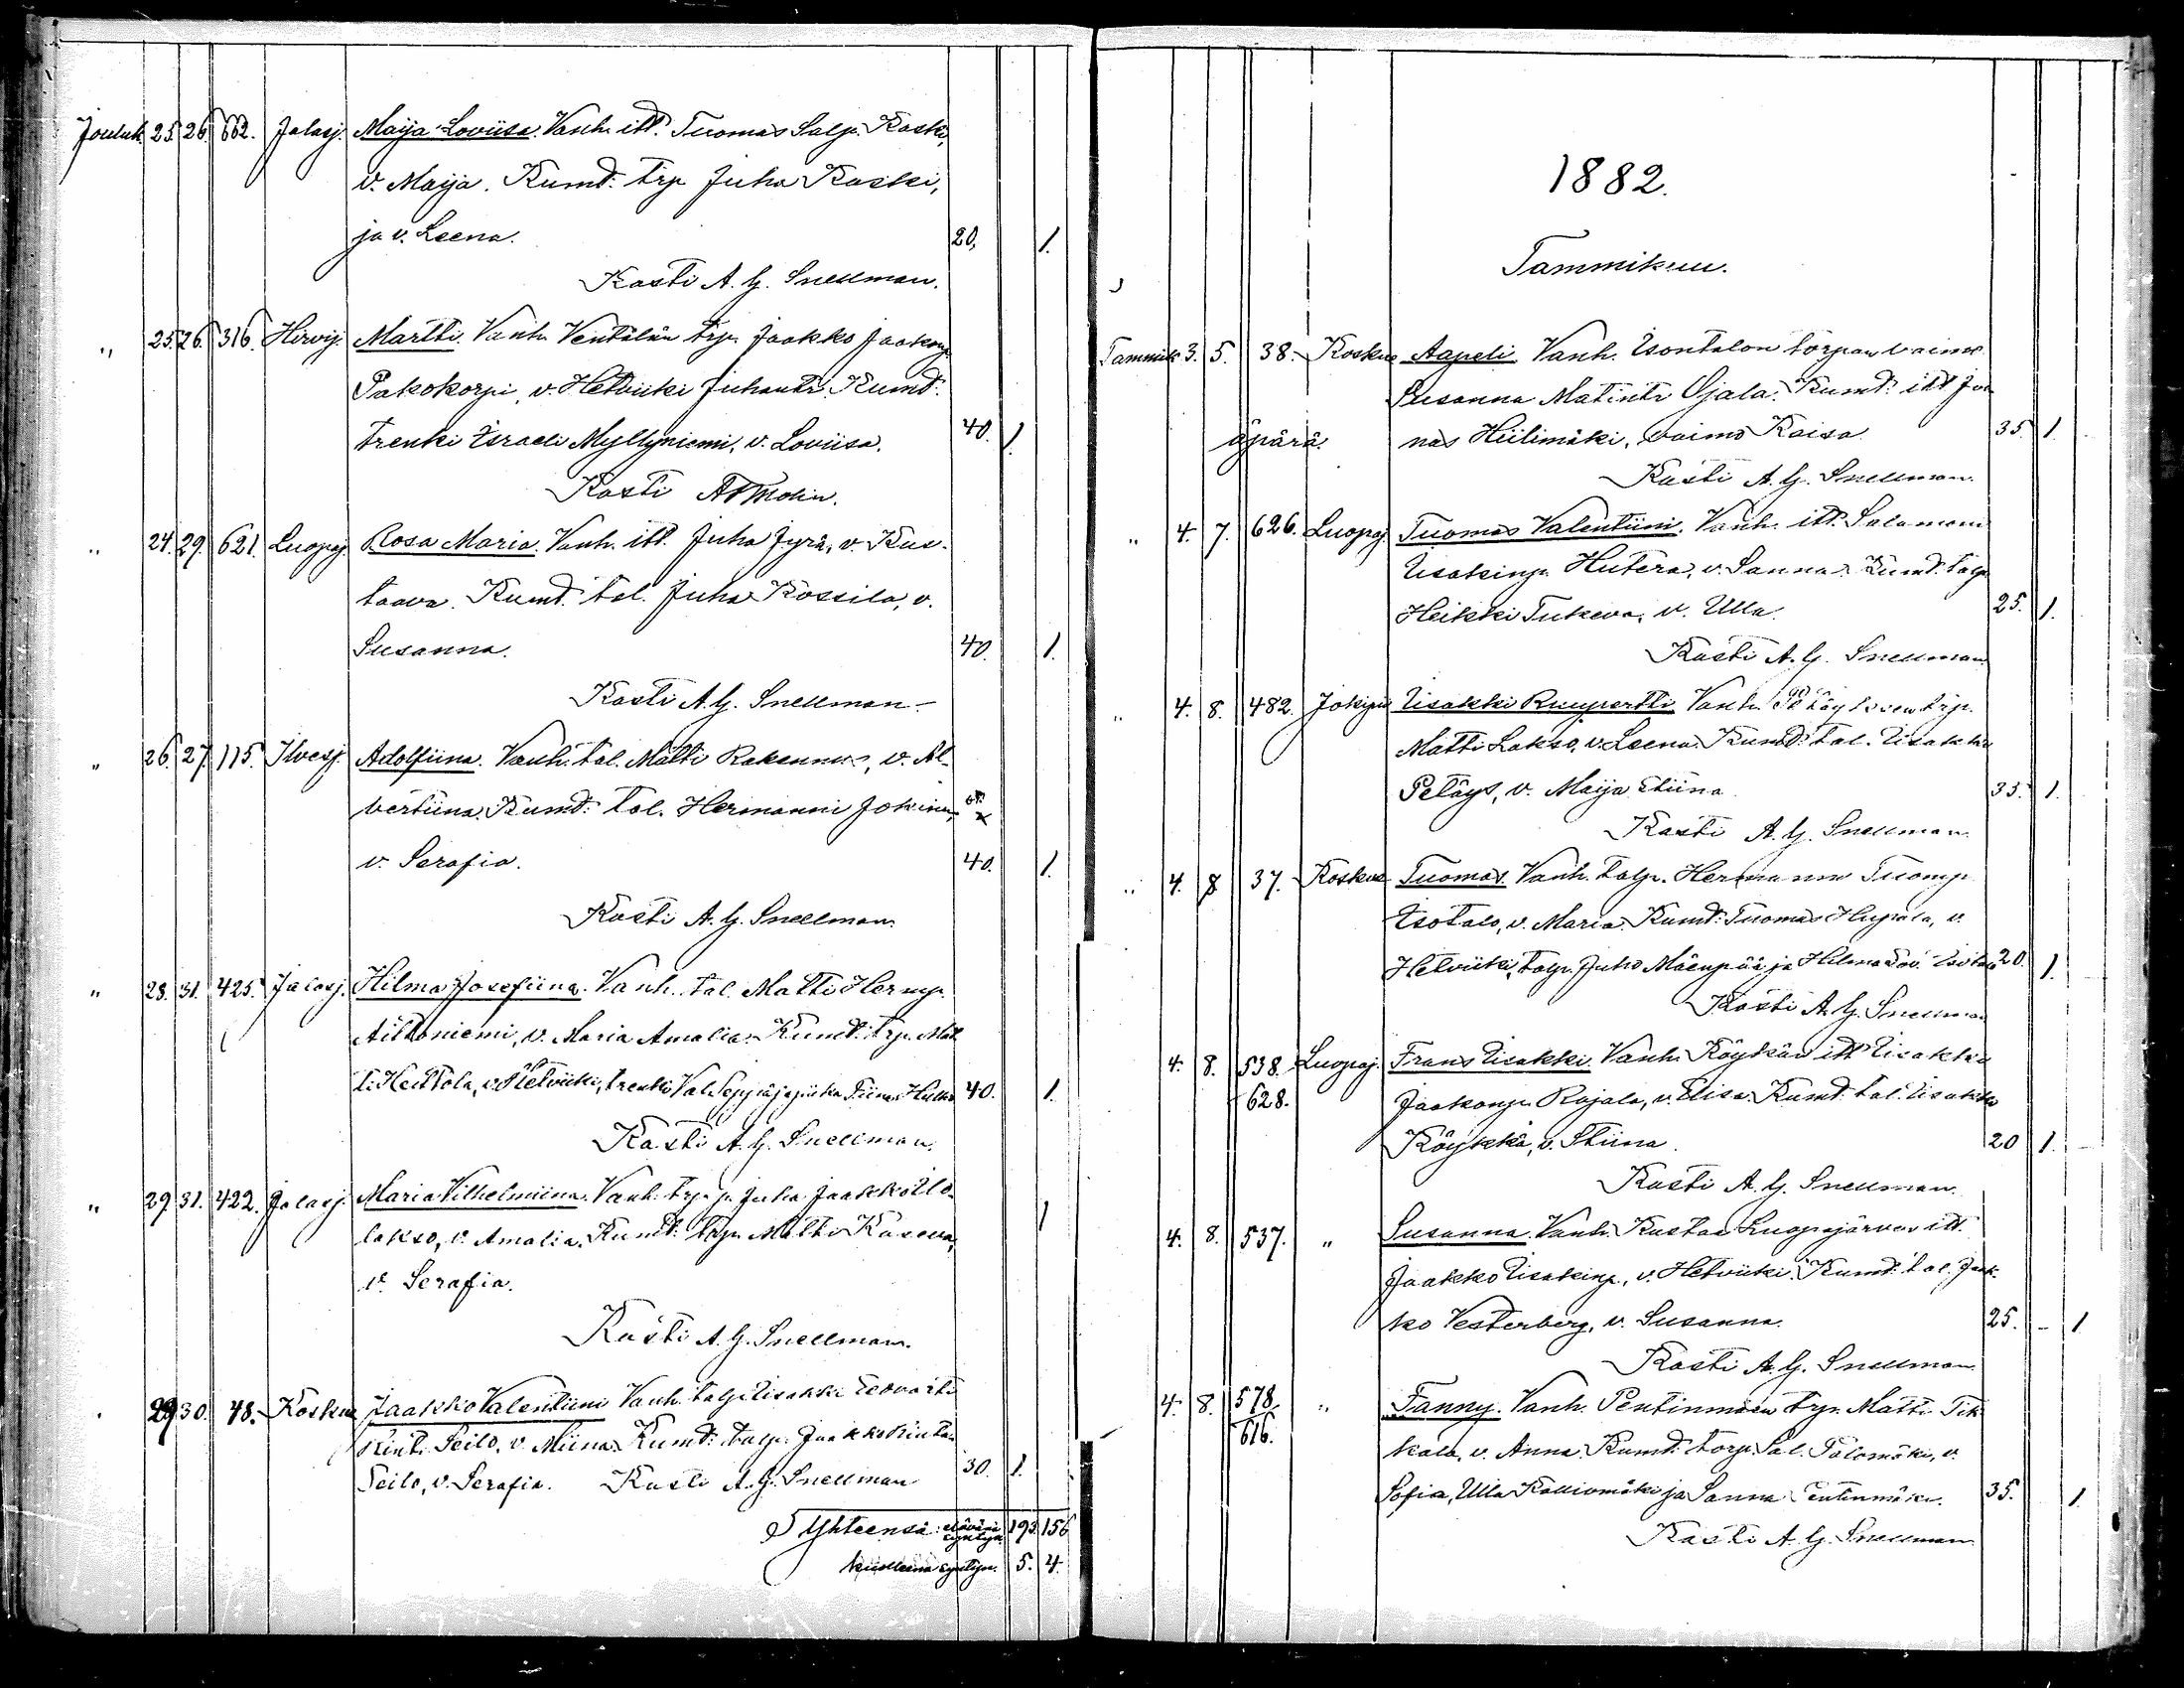 Jouluk. 25. 26. 662. Jalasj. Maija Loviisa. Vanh. itl. Tuomas Salp. Koski,
v. Maija. Kumd: trp. Juha Koski,
ja v. Leena. 20. 1.
Kasti A. G. Snellman.
" 25. 26. 316. Hirvij. Martti. Vanh. Ventälän trp. Jaakko Jaakonp.
Pakokorpi, v. Hetviiki Juhantr. Kumd:
trenki Israeli Myllyniemi, v. Loviisa. 40. 1.
Kasti
" 24. 29. 621. Luopaj. Rosa Maria. Vanh. itl. Juha Jyrä, v. Kus-
taava. Kumd: tal. Juha Kossila, v.
Susanna. 40. 1.
Kasti A. G. Snellman.
" 26. 27. 115. Ilvesj. Adolfiina. Vanh. tal. Matti Rakennus, v. Al-
bertiina. Kumd: tal. Hermanni
v. Serafia. 40. 1.
Kasti A. G. Snellman.
" 28. 31. 425. Jalasj. Hilma Josefiina. Vanh. tal. Matti Hermp.
Aittoniemi, v. Maria Amalia. Kumd: trp. Mat
ti Heittola, v. Hetviiki, trenki Val. Seppä ja piika Tiina 40. 1.
Kasti A. G. Snellman.
" 29. 31. 422. Jalasj. Maria Vilhelmiina. Vanh. trp. p. Juha Jaakko Ulo- 1
lakso, v. Amalia. Kumd: trp. Matti Kaseva,
v. Serafia.
Kasti A. G. Snellman.
29. 30. 48. Koskue Jaakko Valentiini Vanh. talp. Iisakki Edvartti
Rint. Seilo, v. Miina. Kumd: talp. Jaakko Rintan
Seilo, v. Serafia. Kasti A. G. Snellman 30. 1.
Yhteensä: elävänä syntyn. 193. 156
kuolleena syntyn. 5. 4.
1882.
Tammikuu.
Tammik. 3. 5. 38. Koskue Aapeli. Vanh. Isontalon torpan vaimo
Susanna Matintr Ojala. Kumd: itl Joo
äpärä. nas Hiilimäki, vaimo Kaisa. 35. 1.
Kasti A. G. Snellman.
" 4. 7. 626. Luopaj. Tuomas Valentiini. Vanh. itl. Salomoni
Iisakinp. Hutera, v. Sanna. Kumd. talp
Heikki Tukeva, v. Ulla. 25. 1.
Kasti A. G. Snellman
" 4. 8. 482. Jokipii Iisakki Ruupertti Vanh. trp.
Matti Lakso, v. Leena. Kumd: tal. Iisakki
Petäys, v. Maija Stiina 35. 1.
Kasti A. G. Snellman.
" 4. 8 37. Koskue Tuomas. Vanh. talp. Hermanni Tuomp
Isotalo, v. Maria. Kumd: Tuomas Hupala, v.
Hetviiki, talp. Juho Mäenpää ja Hilma 20. 1.
Kasti A. G. Snellman
4. 8. 538. Luopaj. Frans Iisakki. Vanh. Köykän itl Iisakki
628. Jaakonp. Rajala, v. Elisa. Kumd: tal. Iisakki
Köykkä, v. Stiina. 20 1.
Kasti A. G. Snellman.
4. 8. 537. " Susanna. Vanh. Kustaa Luopajärven itl.
Jaakko Iisakinp., v. Hetviiki. Kumd: tal. Jaak-
ko Vesterberg, v. Susanna. 25. 1
Kasti A. G. Snellman
4. 8. 578. " Fanny. Vanh. Pentinmäen trp. Matti Tik
616. kala, v. Anna. Kumd: torp. Sal. Palomäki, v.
Sofia, Ulla Kalliomäki ja Sanna Pentinmäki. 35. 1
Kasti A. G. Snellman